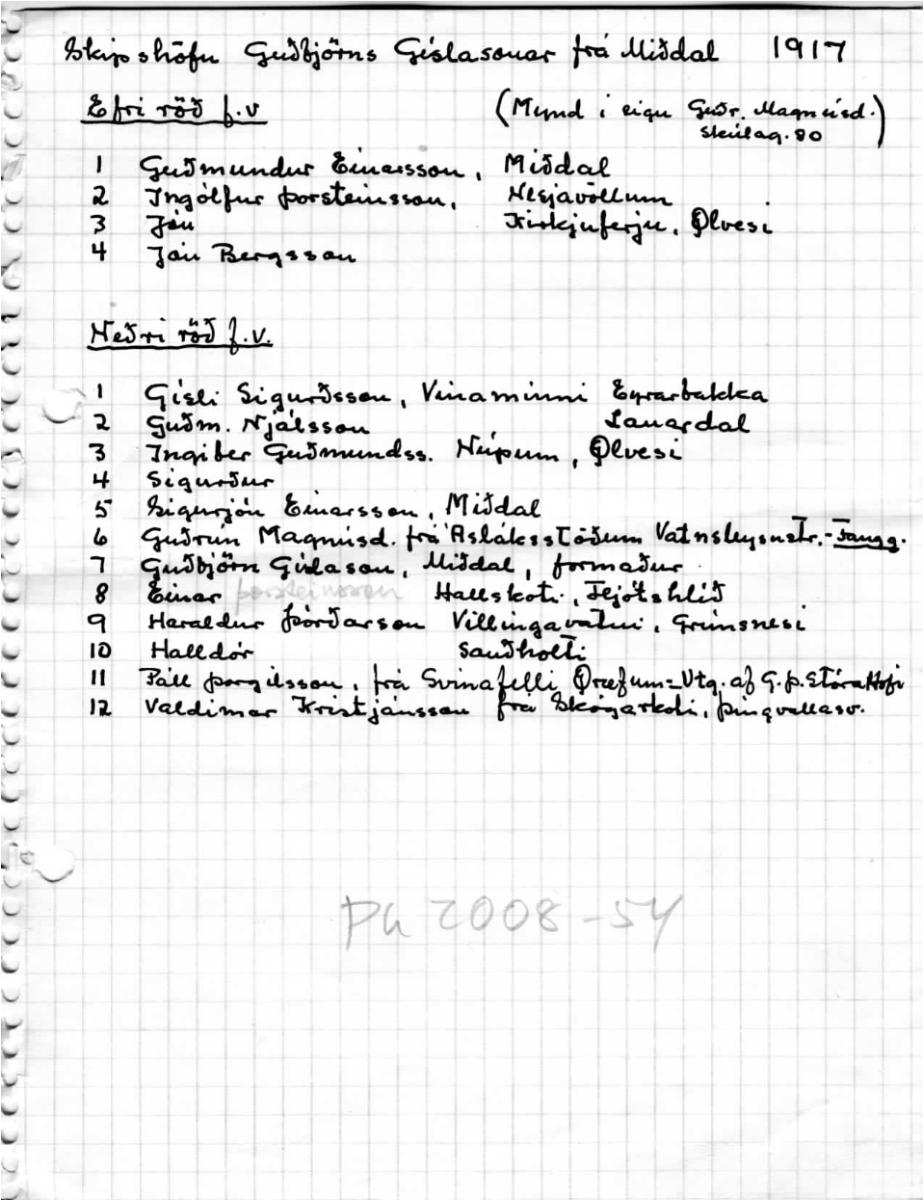 Skipshöfn Guðbjörns Gíslasonar frá Miðdal 1917
Efri röð f.v (Mynd í eigu Guðr. Magnúsd.
Skúlag. 80)
1 Guðmundur Einarsson, Miðdal
2 Ingólfur Þorsteinsson, Nesjavöllum
3 Jón Kirkjuferju, Ölvesi
4 Jón Bergsson
Neðri röð f.v.
1 Gísli Sigurðsson, Vinaminni Eyrarbakka
2 Guðm. Njálsson Laugardal
3 Ingiber Guðmundss. Núpum, Ölvesi
4 Sigurður
5 Sigurjón Einarsson, Miðdal
6 Guðrún Magnúsd. frá Ásláksstöðum Vatnsleysustr. - Fangg.
7 Guðbjörn Gíslason, Miðdal, formaður
8 Einar Þorsteinsson Hallskoti, Fljótshlíð
9 Haraldur Þórðarson Villingavatni, Grímsnesi
10 Halldór Sandholti
11 Páll Þorgilsson, frá Svínafelli Öræfum = Útg. af G.Þ. Stóra Hofi
12 Valdimar Kristjánsson frá Skógarkoti, Þingvallasv.
PH 2008-54